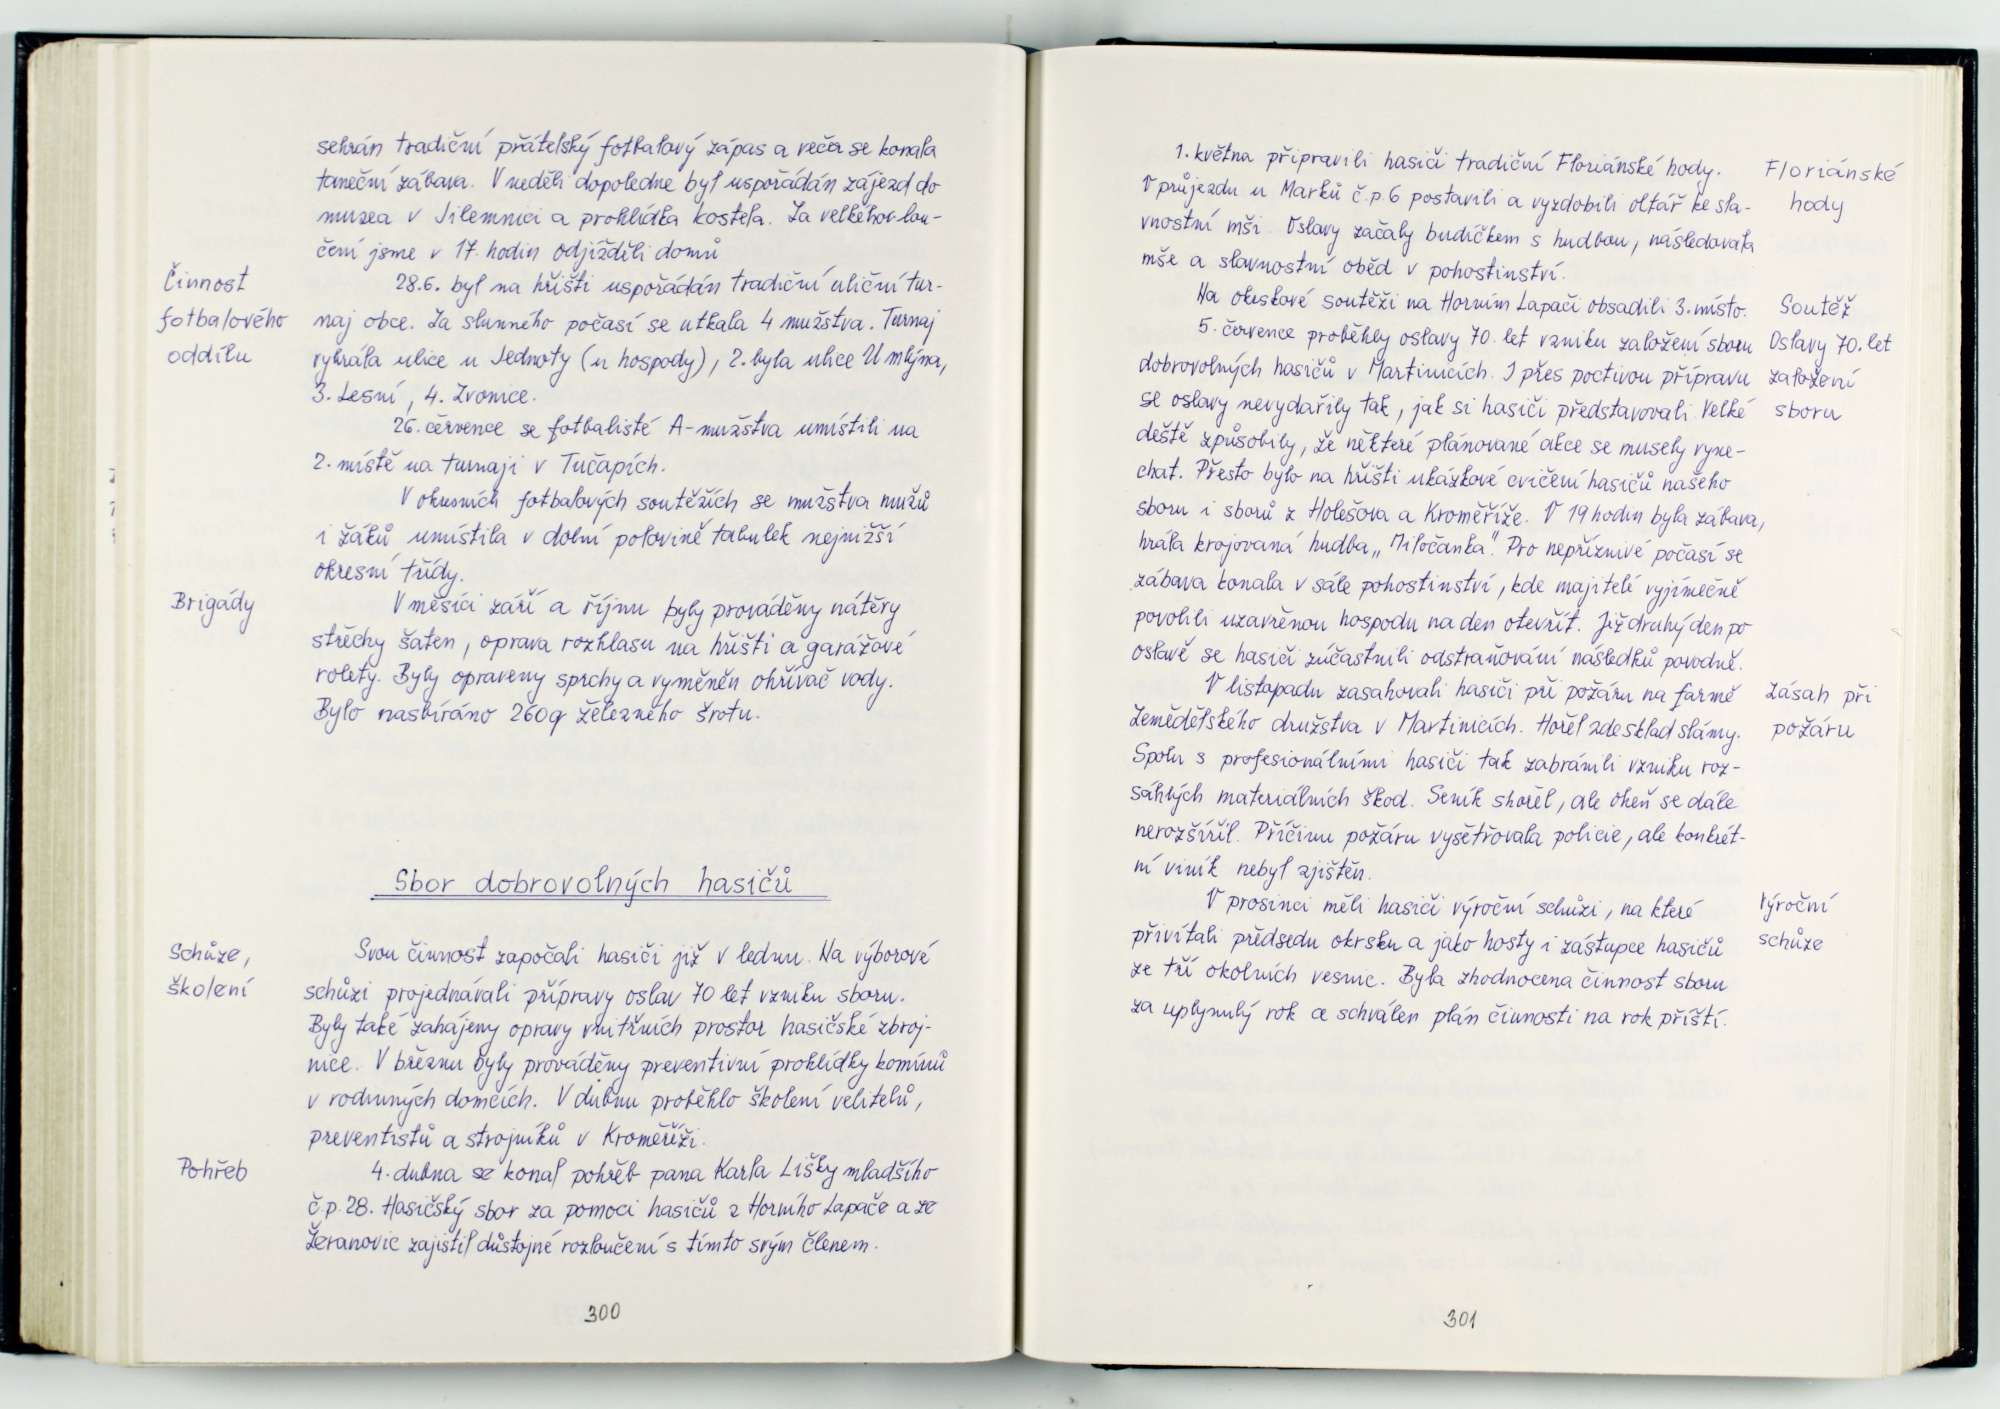 sehrán tradiční přátelský fotbalový zápas a večer se konala
taneční zábava. V neděli dopoledne byl uspořádán zájezd do
muzea v Jilemnici a prohlídka kostela. Za velkého lou-
čení jsme v 17. hodin odjížděli domů
Činnost
fotbalového
oddílu
28.6. byl na hřišti uspořádán tradiční uliční tur-
naj obce. Za slunného počasí se utkala 4 mužstva. Turnaj
vyhrála ulice u Jednoty (u hospody), 2. byla ulice U mlýna,
3. Lesní, 4. Zvonice.
26. července se fotbalisté A-mužstva umístili na
2. místě na turnaji v Tučapích.
V okresních fotbalových soutěžích se mužstva mužů
i žáků umístila v dolní polovině tabulek nejnižší
okresní třídy.
Brigády
V měsíci září a říjnu byly prováděny nátěry
střechy šaten, oprava rozhlasu na hřišti a garážové
rolety. Byly opraveny sprchy a vyměněn ohřívač vody.
Bylo nasbíráno 260q železného šrotu.
Sbor dobrovolných hasičů
Schůze,
školení
Svou činnost započali hasiči již v lednu. Na výborové
schůzi projednávali přípravy oslav 70 let vzniku sboru.
Byly také zahájeny opravy vnitřních prostor hasičské zbroj-
nice. V březnu byly prováděny preventivní prohlídky komínů
v rodinných domcích. V dubnu proběhlo školení velitelů,
preventistů a strojníků v Kroměříži.
Pohřeb
4. dubna se konal pohřeb pana Karla Lišky mladšího
č.p. 28. Hasičský sbor za pomoci hasičů z Horního Lapače a ze
Žeranovic zajistil důstojné rozloučení s tímto svým členem.
300
1. května připravili hasiči tradiční Floriánské hody.
V průjezdu u Marků č.p. 6 postavili a vyzdobili oltář ke sla-
vnostní mši. Oslavy začaly budíčkem s hudbou, následovala
mše a slavnostní oběd v pohostinství.
Floriánské
hody
Na okrskové soutěži na Horním Lapači obsadili 3. místo.
Soutěž
5. července proběhly oslavy 70. let vzniku založení sboru
dobrovolných hasičů v Martinicích. I přes poctivou přípravu
se oslavy nevydařily tak, jak si hasiči představovali. Velké
deště způsobily, že některé plánované akce se musely vyne-
chat. Přesto bylo na hřišti ukázkové cvičení hasičů našeho
sboru i sborů z Holešova a Kroměříže. V 19 hodin byla zábava,
hrála krojovaná hudba „Miločanka". Pro nepříznivé počasí se
zábava konala v sále pohostinství, kde majitelé vyjímečně
povolili uzavřenou hospodu na den otevřít. Již druhý den po
oslavě se hasiči zúčastnili odstraňování následků povodně.
Oslavy 70. let
založení
sboru
V listopadu zasahovali hasiči při požáru na farmě
Zemědělského družstva v Martinicích. Hořel zde sklad slámy.
Spolu s profesionálními hasiči tak zabránili vzniku roz-
sáhlých materiálních škod. Seník shořel, ale oheň se dále
nerozšířil. Příčinu požáru vyšetřovala policie, ale konkrét-
ní viník nebyl zjištěn.
Zásah při
požáru
V prosinci měli hasiči výroční schůzi, na které
přivítali předsedu okrsku a jako hosty i zástupce hasičů
ze tří okolních vesnic. Byla zhodnocena činnost sboru
za uplynulý rok a schválen plán činnosti na rok příští.
Výroční
schůze
301